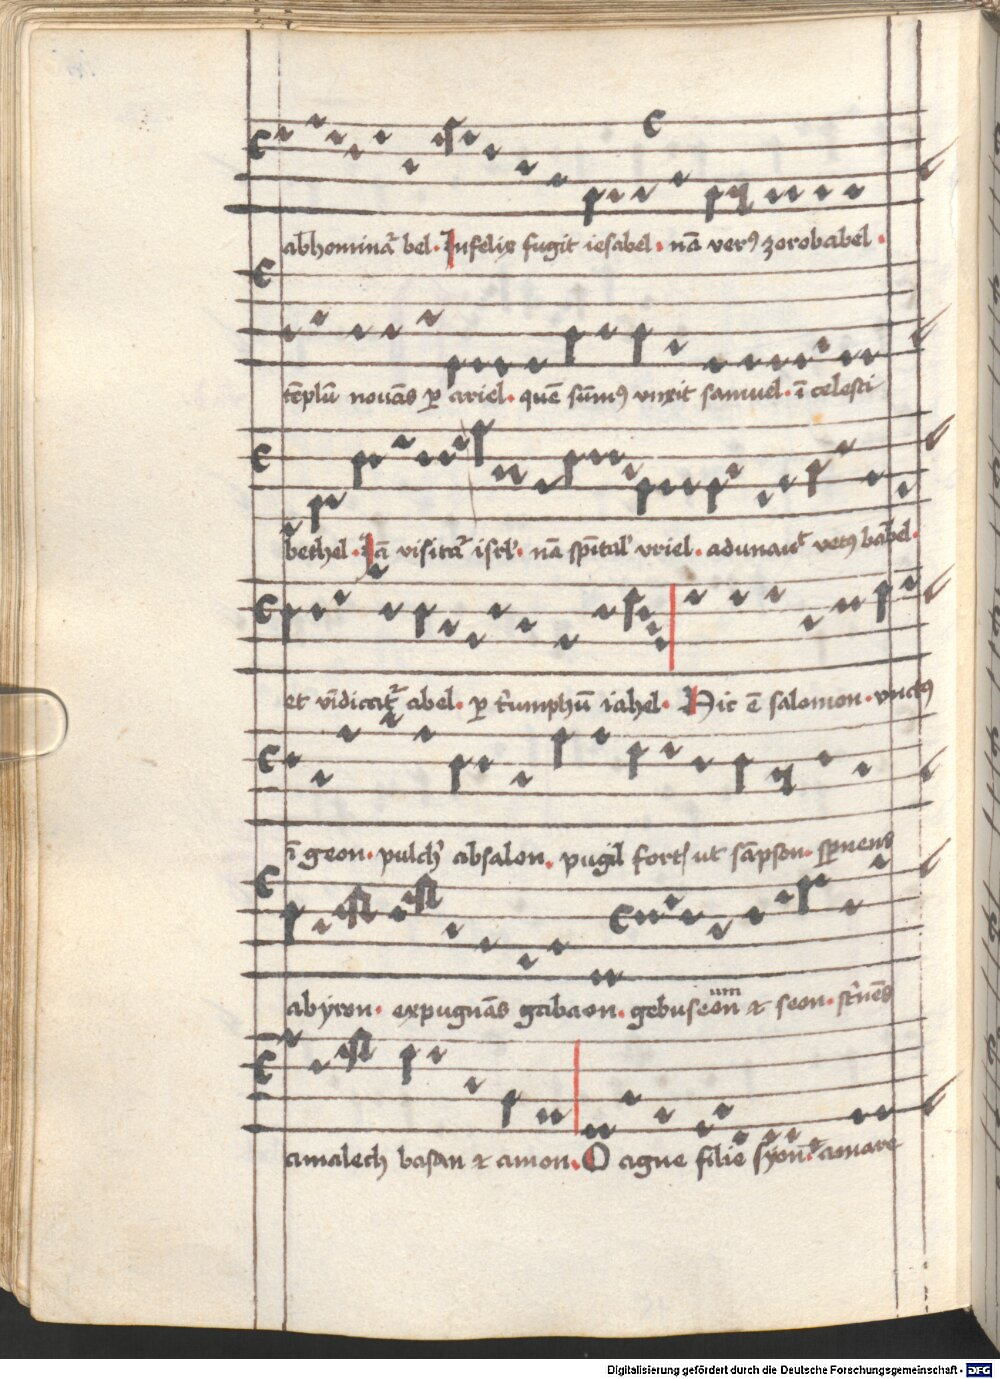 abhominat᷑ bel. Infelix fugit iesabel. nā verꝰ zorobabel.
tēplū nouās ꝑ ariel. quē sūmꝰ vnxit samuel. ī celesti
bethel. Jā visitat᷑ isrl'. nā spīital' vriel. adunauit vetꝰ babel.
et vīdicat᷑ abel. ꝑ t'umphū iahel. Hic ē salomon. vnctꝰ
ī geon. pulch' absalon. pugil fortꝭ ut sāpson. spernens
abyron. expugnās gabaon. gebuseon um ⁊ seon. st'nēs
amalech basan ⁊ amon. O agne filie syon. amare
Digitalisierung gefördert durch die Deutsche Forschungsgemeinschaft - DFG